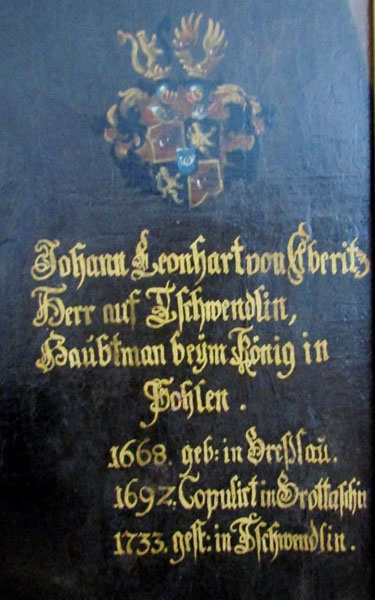 Johann Leonhart von Eberitz
Herr auf Tschwendlin,
Haubtman beÿm König in
Pohlen.
1668. geb: in Breßlau.
1692. Copulirt in Grottaschin
1733. gest: in Tschwendlin.